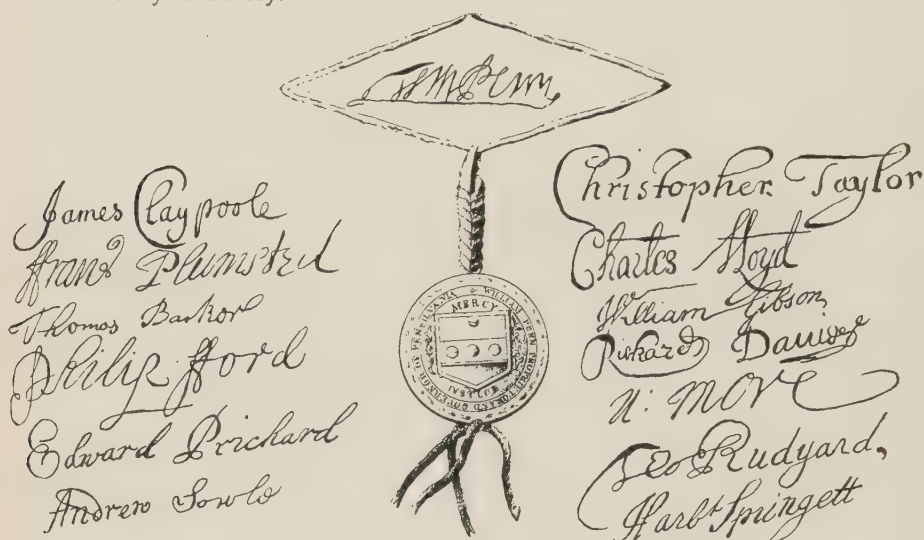 Wm Penn
James Claypoole
ffranc Plumsted
Thomas Barker
Philip fford
Edward Prichard
Andrew Sowle
MERCY
JUSTICE
WILLIAM PENN PROPRIETOR AND GOVERNOR OF PENSILVANIA
Christopher Taylor
Charles Lloyd
William Gibson
Richard Davies
N: More
Geo Rudyard,
Harbt Springett